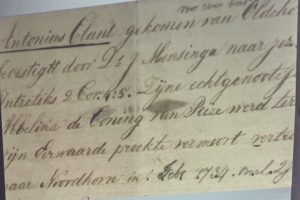 met een
Antonius Clant gekomen van Oldeho
bevestigt door Ds J Mensinga naar
Intrerede 2 Cor. 4:5. Zijne echtgenoote
Abelina de Coning van Peize werd
zijn Eerwaarde preekte vermoert vertre
naar Noordhorn in Feb 1734